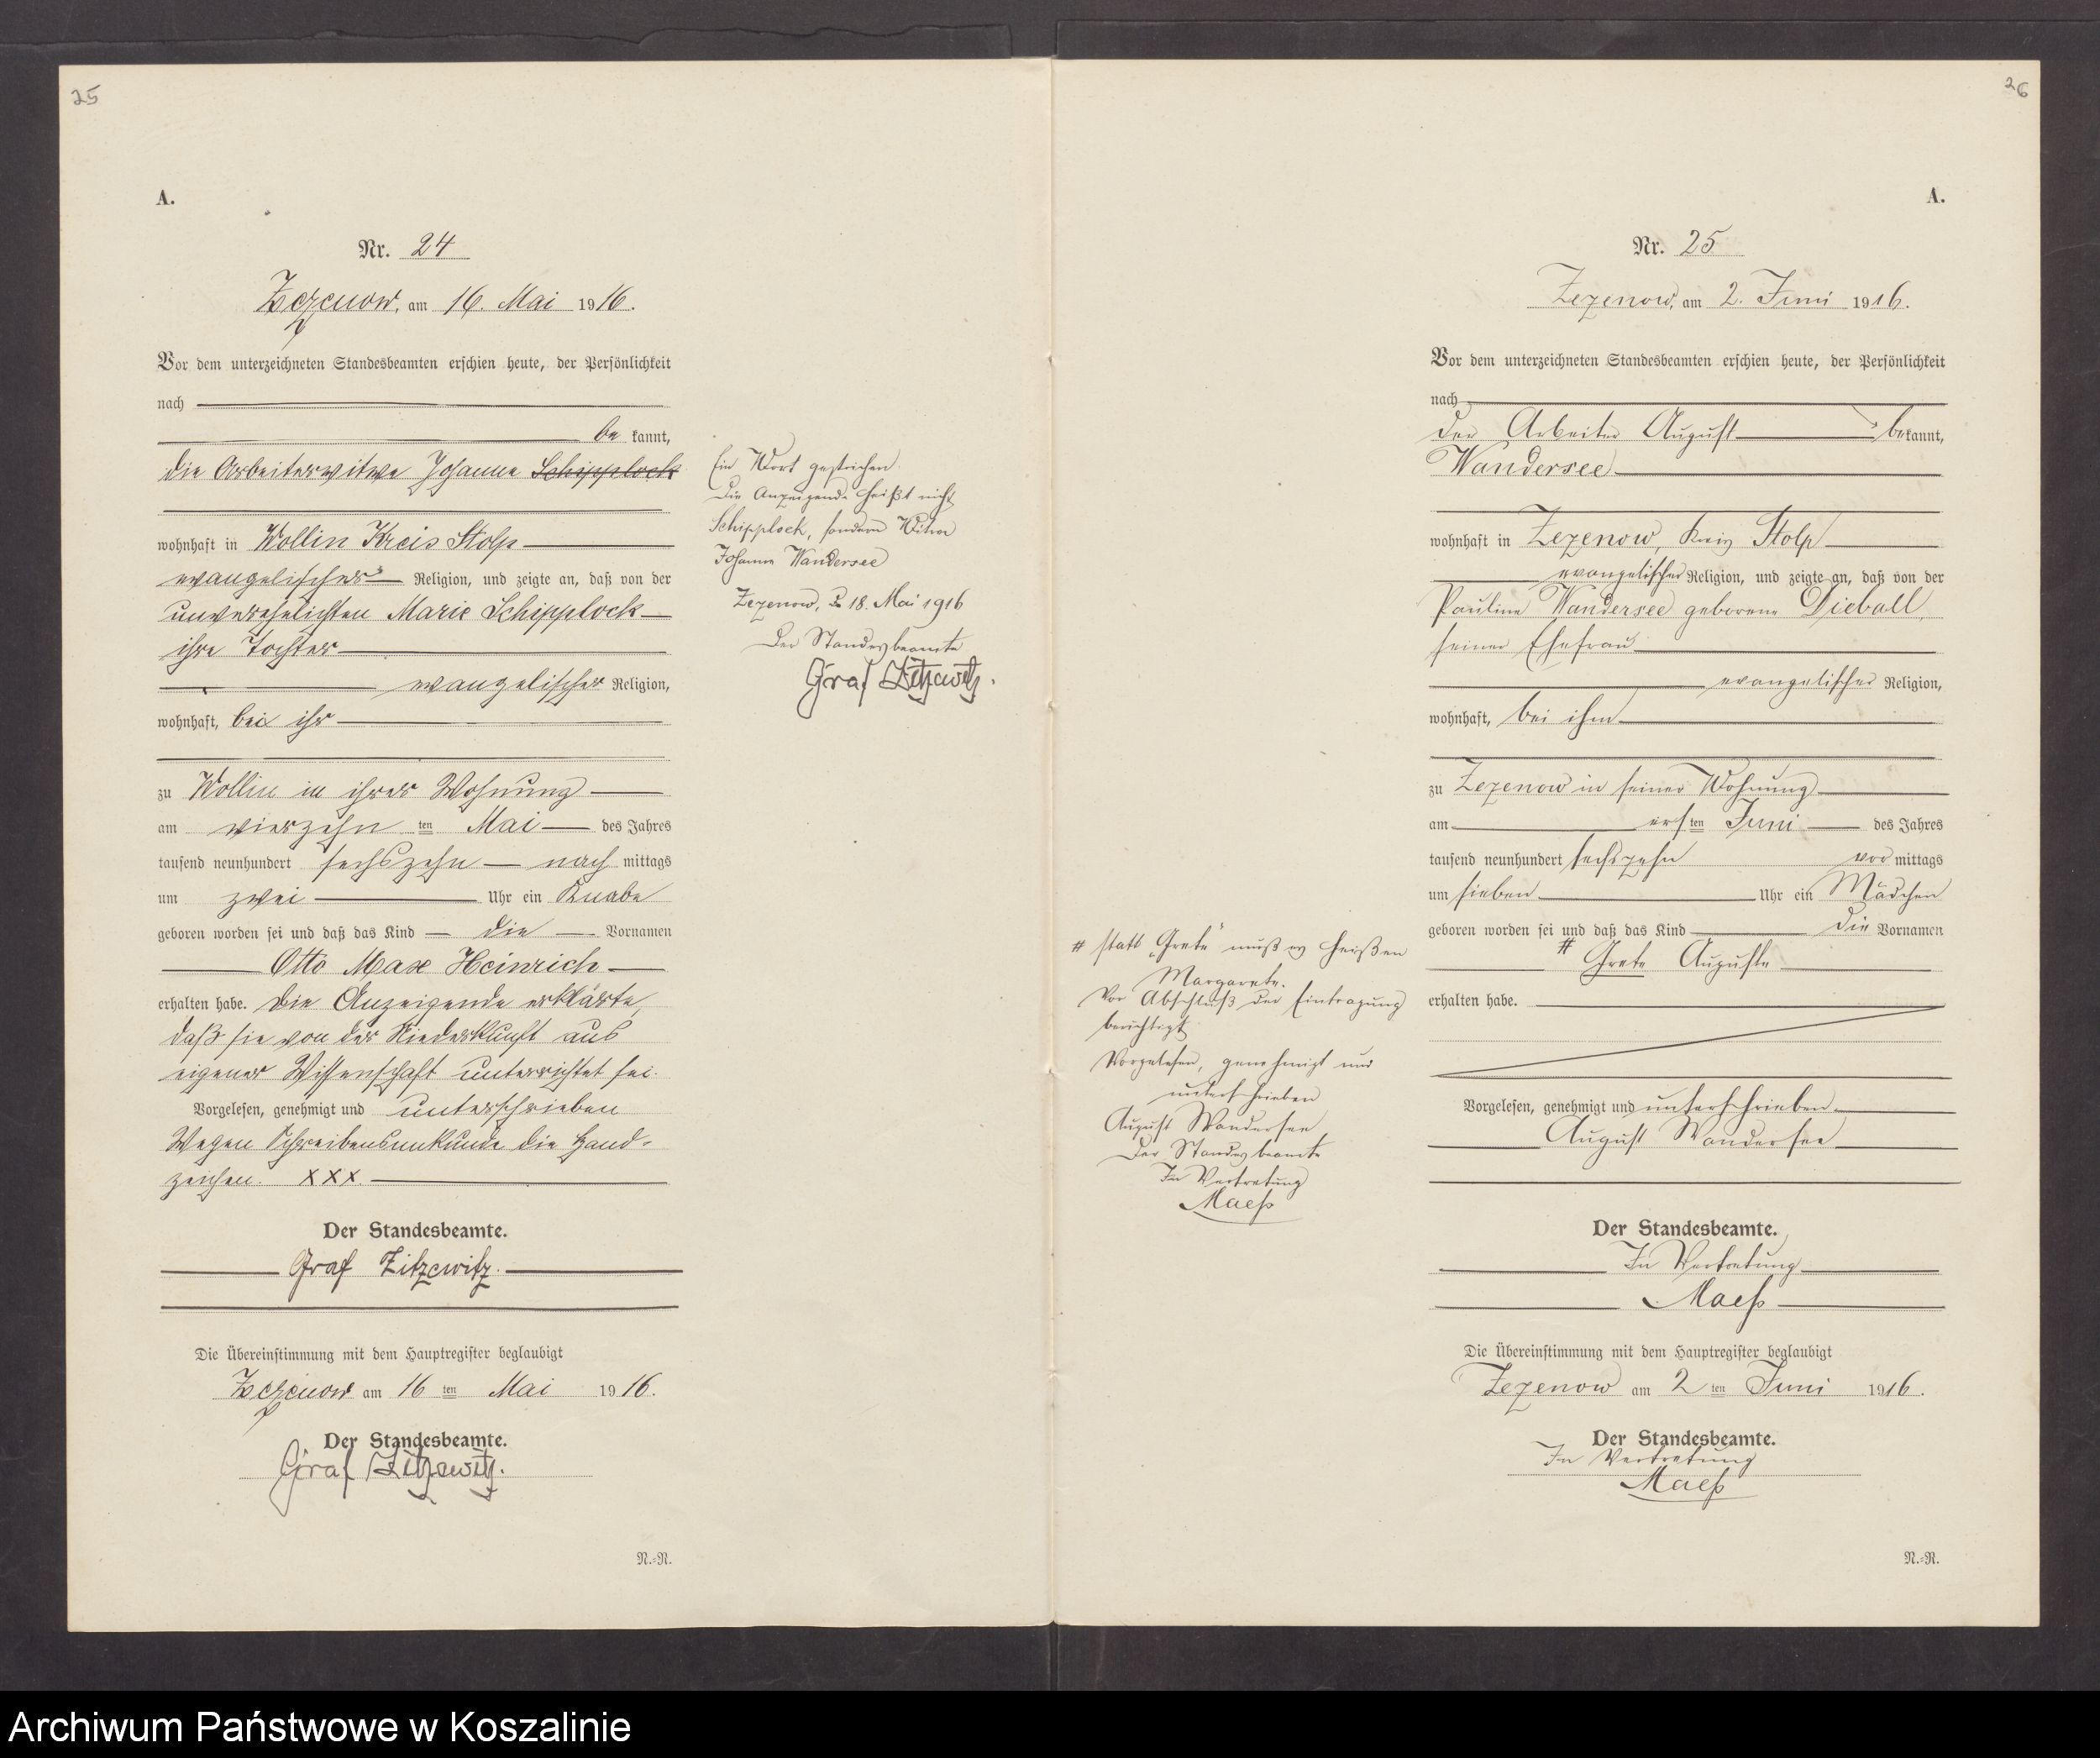 25
A.
Nr. 24
Zezenow, am 16. Mai 1916.
Vor dem unterzeichneten Standesbeamten erschien heute, der Persönlichkeit
nach
be kannt,
die Arbeiterwitwe Johanne Schipplock
wohnhaft in Wollin Kreis Stolp
evangelischer Religion, und zeigte an, daß von der
unverehelichten Marie Schipplock
ihre Tochter
evangelischer Religion,
wohnhaft, bei ihr
zu Wollin in ihrer Wohnung
am vierzehn ten Mai des Jahres
tausend neunhundert sechszehn nach mittags
um zwei Uhr ein Knabe
geboren worden sei und daß das Kind die Vornamen
Otto Max Heinrich
erhalten habe. Die Anzeigende erklärte,
daß sie von der Niederkunft aus
eigener Wissenschaft unterrichtet sei.
Vorgelesen, genehmigt und unterschrieben
Wegen Schreibensunkunde die Hand-
zeichen. XXX.
Der Standesbeamte.
Graf Zitzewitz.
Die Übereinstimmung mit dem Hauptregister beglaubigt
Zezenow am 16 ten Mai 1916.
Der Standesbeamte.
Graf Zitzewitz.
N.-N.
Ein Wort gestrichen.
Die Anzeigende heißt nicht
Schipplock, sondern Witwe
Johanne Wandersee
Zezenow, d. 18. Mai 1916
Der Standesbeamte
Graf Zitzewitz.
26
A.
Nr. 25
Zezenow, am 2. Juni 1916.
Vor dem unterzeichneten Standesbeamten erschien heute, der Persönlichkeit
nach
der Arbeiter August bekannt,
Wandersee
wohnhaft in Zezenow, Kreis Stolp
evangelischer Religion, und zeigte an, daß von der
Pauline Wandersee geborene Dieball,
seiner Ehefrau
evangelischer Religion,
wohnhaft, bei ihm
zu Zezenow in seiner Wohnung
am ersten Juni des Jahres
tausend neunhundert sechszehn vor mittags
um sieben Uhr ein Mädchen
geboren worden sei und daß das Kind die Vornamen
# Grete Auguste
erhalten habe.
Vorgelesen, genehmigt und unterschrieben
August Wandersee
Der Standesbeamte.
In Vertretung
Maeß
Die Übereinstimmung mit dem Hauptregister beglaubigt
Zezenow am 2 ten Juni 1916.
Der Standesbeamte.
In Vertretung
Maeß
N.-N.
# statt „Grete" muß es heißen
Margarete.
Vor Abschluß der Eintragung
berichtigt
Vorgelesen, genehmigt und
unterschrieben
August Wandersee
Der Standesbeamte
In Vertretung
Maeß
Archiwum Państwowe w Koszalinie